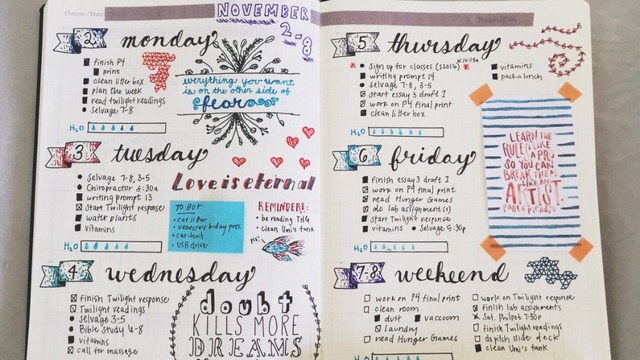 NOVEMBER
2-8
2 monday
finish P4
print
clean litter box
plan the week
read twilight readings
selvage 7-8
H2O
everything you want
is on the other side of
fear
3 tuesday
Selvage 7-8, 3-5
Chiropractor 6:30a
writing prompt 13
Start Twilight response
water plants
vitamins
H2O
Love is eternal
TO BUY:
car litter
vanessa's b-day pres.
cat food
USB drive
REMINDERS:
be reading THG
clean Uni's tank
4 wednesday
finish Twilight response
Twilight readings
Selvage 3-5
Bible Study 6-8
vitamins
call for massage
doubt
KILLS MORE
DREAMS
5 thursday
Sign up for classes
writing prompt 14
Selvage 7-8, 3-5
start essay 3 draft 1
work on P4 final print
clean litter box
vitamins
pack a lunch
H2O
LEARN THE
RULES LIKE
A PRO,
SO YOU CAN
BREAK THEM
LIKE AN
ARTIST.
PABLO PICASSO
6 friday
finish essay 3 draft 1
work on P4 final print
read Hunger Games
do lab assignment(s)
start Twilight response
vitamins
Selvage 5:30p
H2O
7-8 weekend
work on P4 final print
clean room
dust
vaccuum
laundry
read Hunger Games
work on Twilight response
finish lab assignments
Sat. Philpot 7:30p
finish Twilight readings
do pitch slide deck
clean Uni's tank